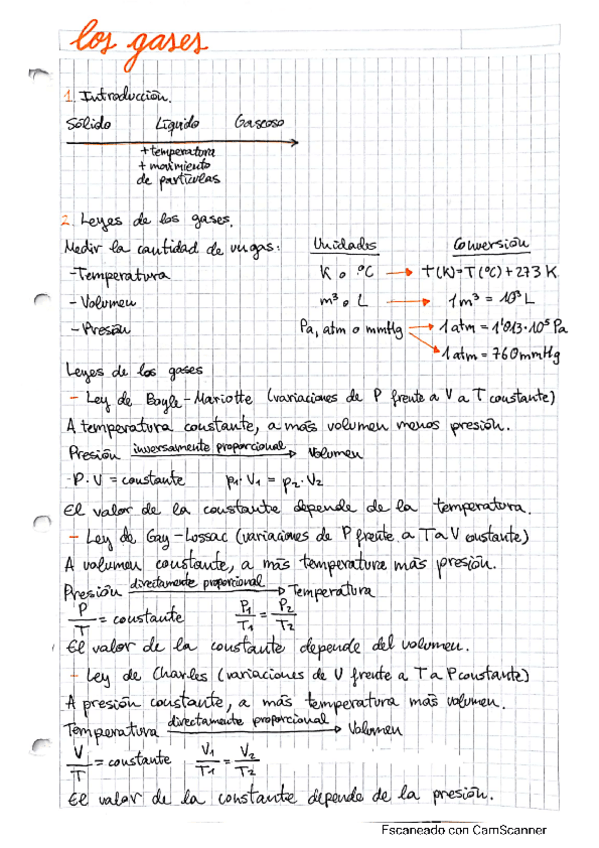 los gases
1. Introducción.
Sólido Líquido Gaseoso
+ temperatura
+ movimiento
de partículas
2. Leyes de los gases.
Medir la cantidad de un gas: Unidades Conversión
- Temperatura K o ºC → T(K)=T(ºC)+273 K
- Volumen m³ o L → 1m³ = 10³ L
- Presión Pa, atm o mmHg → 1 atm = 1'013·10⁵ Pa
→ 1 atm = 760 mmHg
Leyes de los gases
- Ley de Boyle-Mariotte (variaciones de P frente a V a T constante)
A temperatura constante, a más volumen menos presión.
Presión inversamente proporcional → Volumen
·P·V = constante p₁·V₁ = p₂·V₂
El valor de la constante depende de la temperatura.
- Ley de Gay-Lossac (variaciones de P frente a T a V constante)
A volumen constante, a más temperatura más presión.
Presión directamente proporcional → Temperatura
P/T = constante P₁/T₁ = P₂/T₂
El valor de la constante depende del volumen.
- Ley de Charles (variaciones de V frente a T a P constante)
A presión constante, a más temperatura más volumen.
Temperatura directamente proporcional → Volumen
V/T = constante V₁/T₁ = V₂/T₂
El valor de la constante depende de la presión.
Escaneado con CamScanner